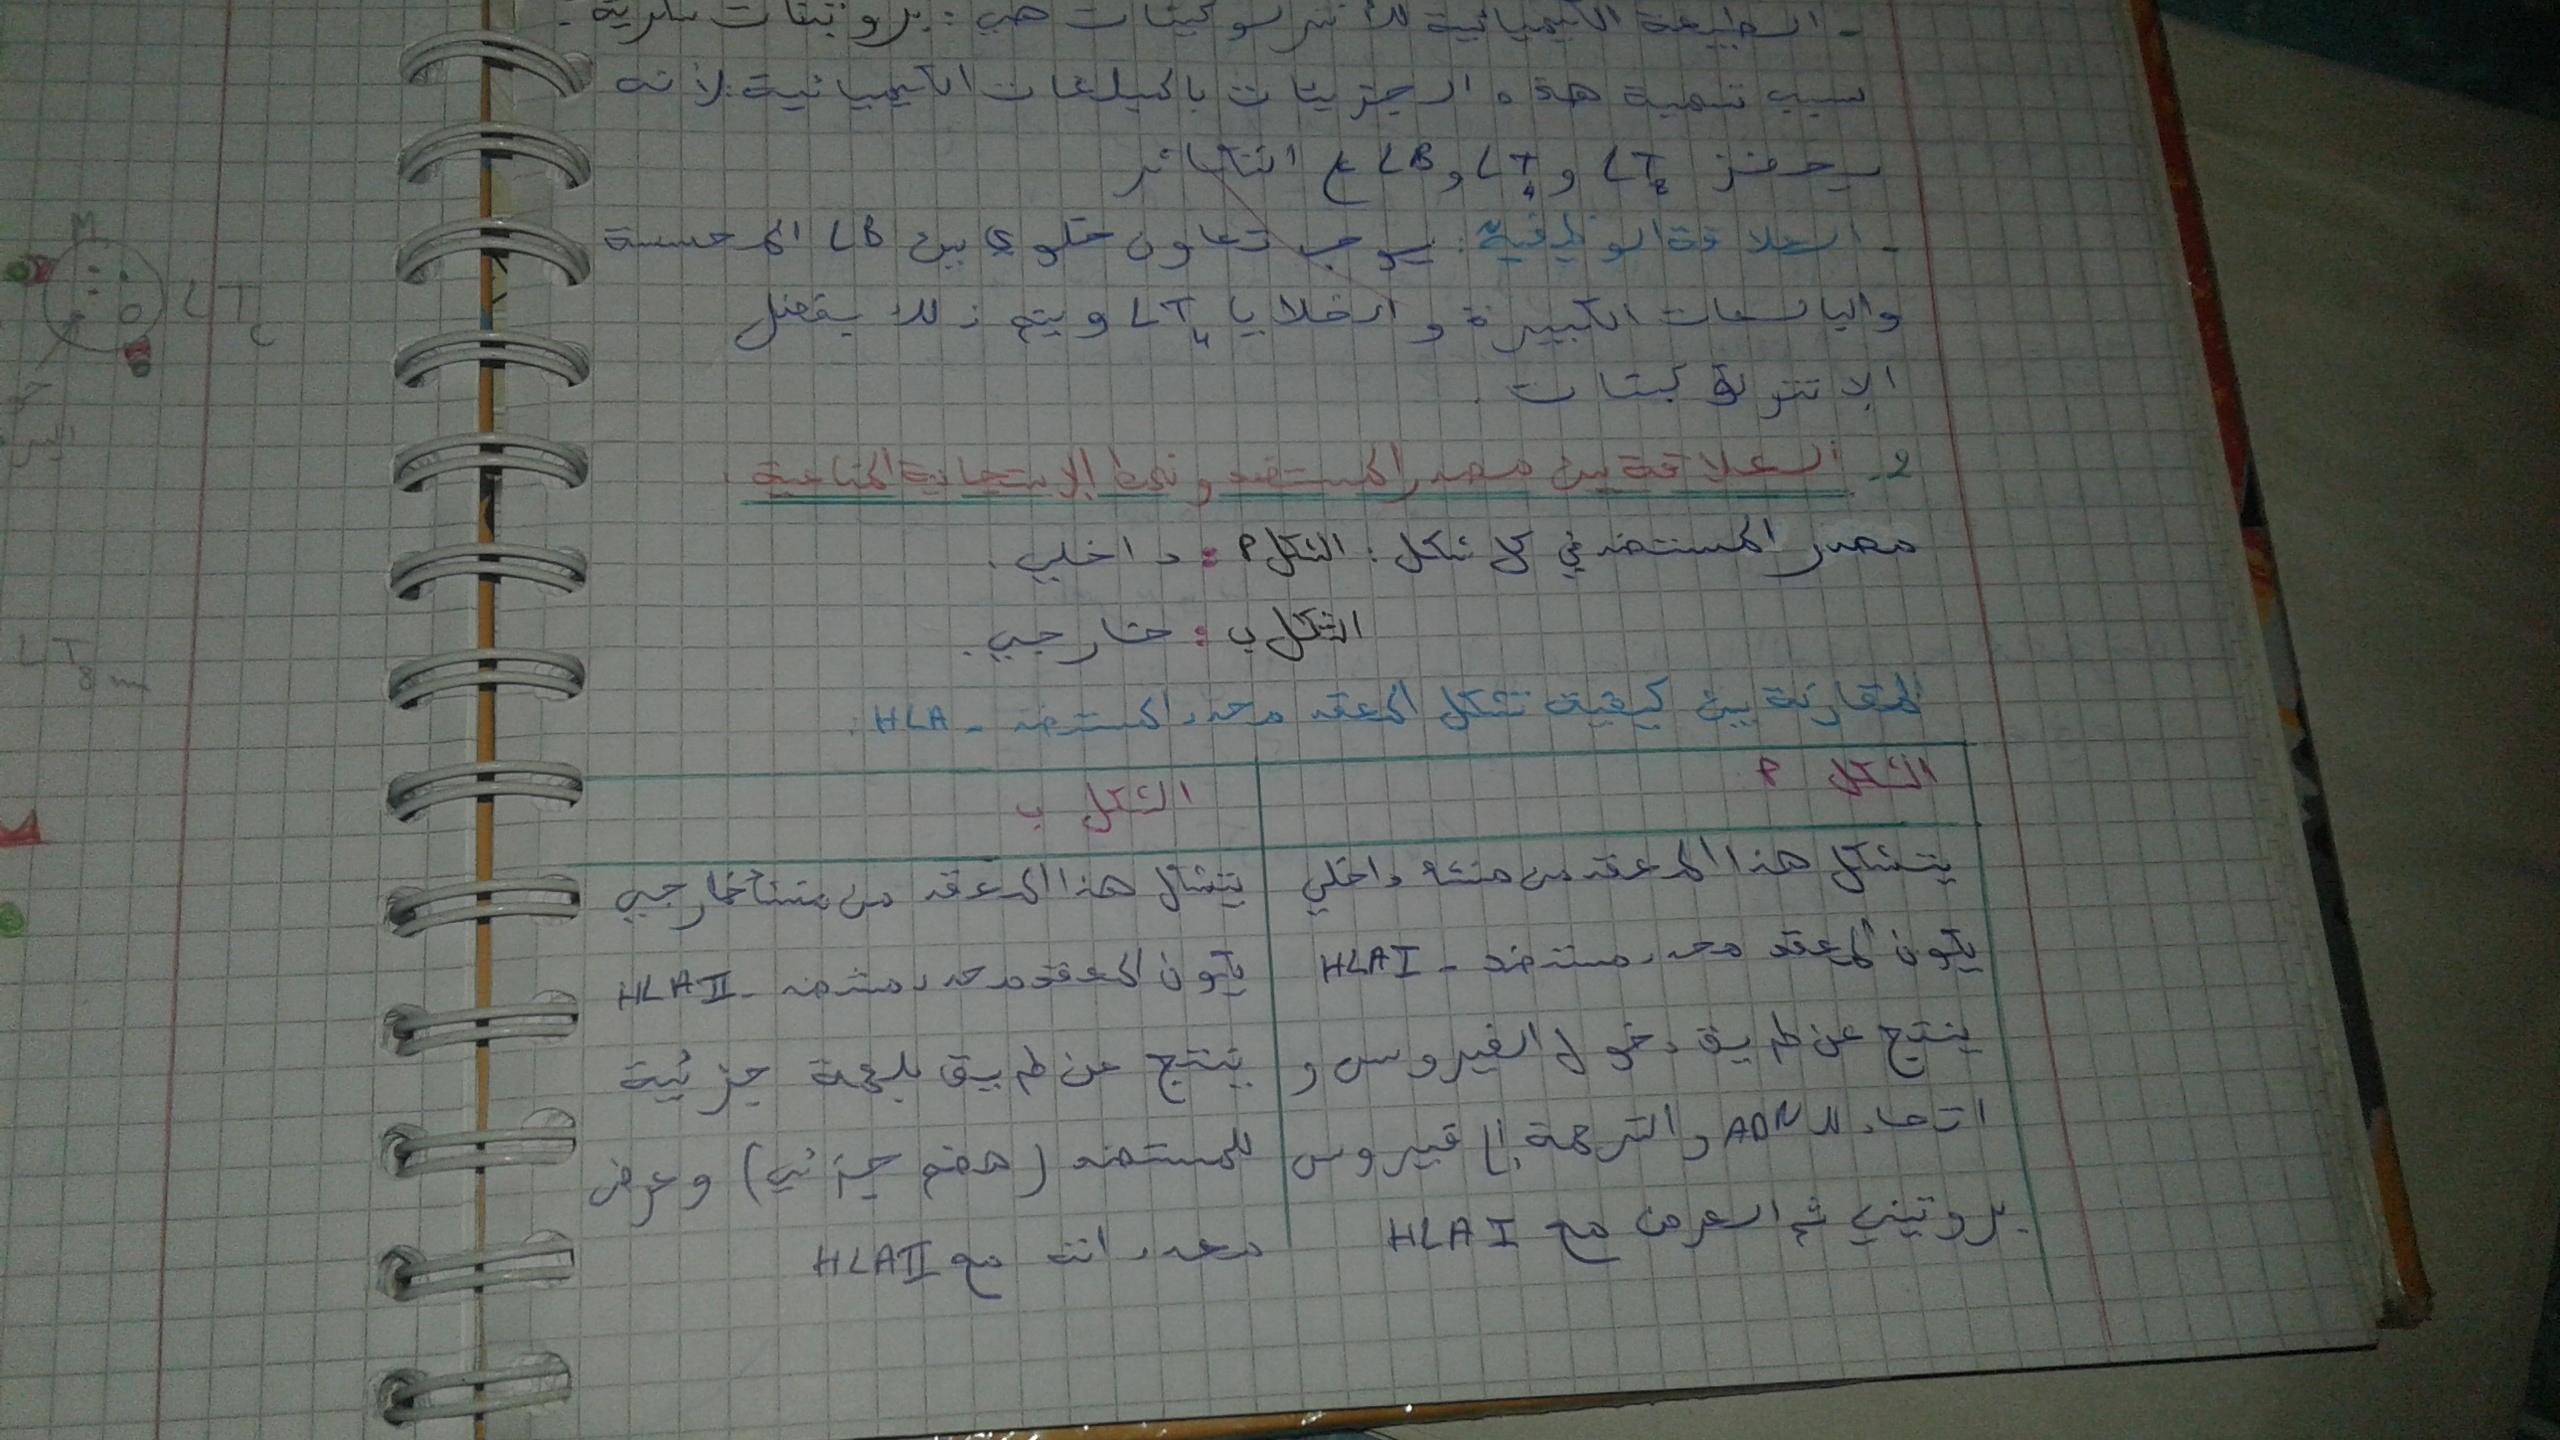 - الطبيعة الكيميائية للأنترلوكينات هي: بروتينات سكرية.
سبب تسمية هذه الجزيئات بالمبلغات الكيميائية: لأنه
يحفز LT8 و LT4 و LB ع التكاثر
- العلاقة الوظيفية: يوجب تعاون خلوي بين LB المحسسة
والبالعات الكبيرة و الخلايا LT4 و يتم ذلك بفضل
الانترلوكينات.
2- العلاقة بين مصدر المستضد و نمط الاستجابة المناعية.
مصدر المستضد في كل شكل: الشكل أ: داخلي.
الشكل ب: خارجي.
المقارنة بين كيفية تشكل المعقد محدد المستضد - HLA:
الشكل أ
الشكل ب
يتشكل هذا المعقد من منشئ داخلي
يكون المعقد محدد مستضد - HLA I
ينتج عن طريق دخول الفيروس و
اتحاد للـ ADN و الترجمة إلى فيروس
بروتيني ثم العرض مع HLA I
يتشكل هذا المعقد من منشأ خارجي
يكون المعقد محدد مستضد - HLA II
ينتج عن طريق بلعمة جزئية
للمستضد (هضم جزئي) و عرض
محدداته مع HLA II
M
LTc
LT8m